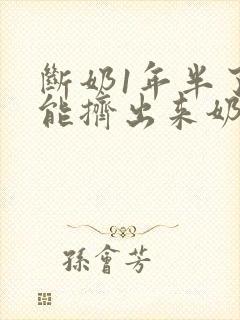 斷奶1年半了
能擠出來奶
孫會芳